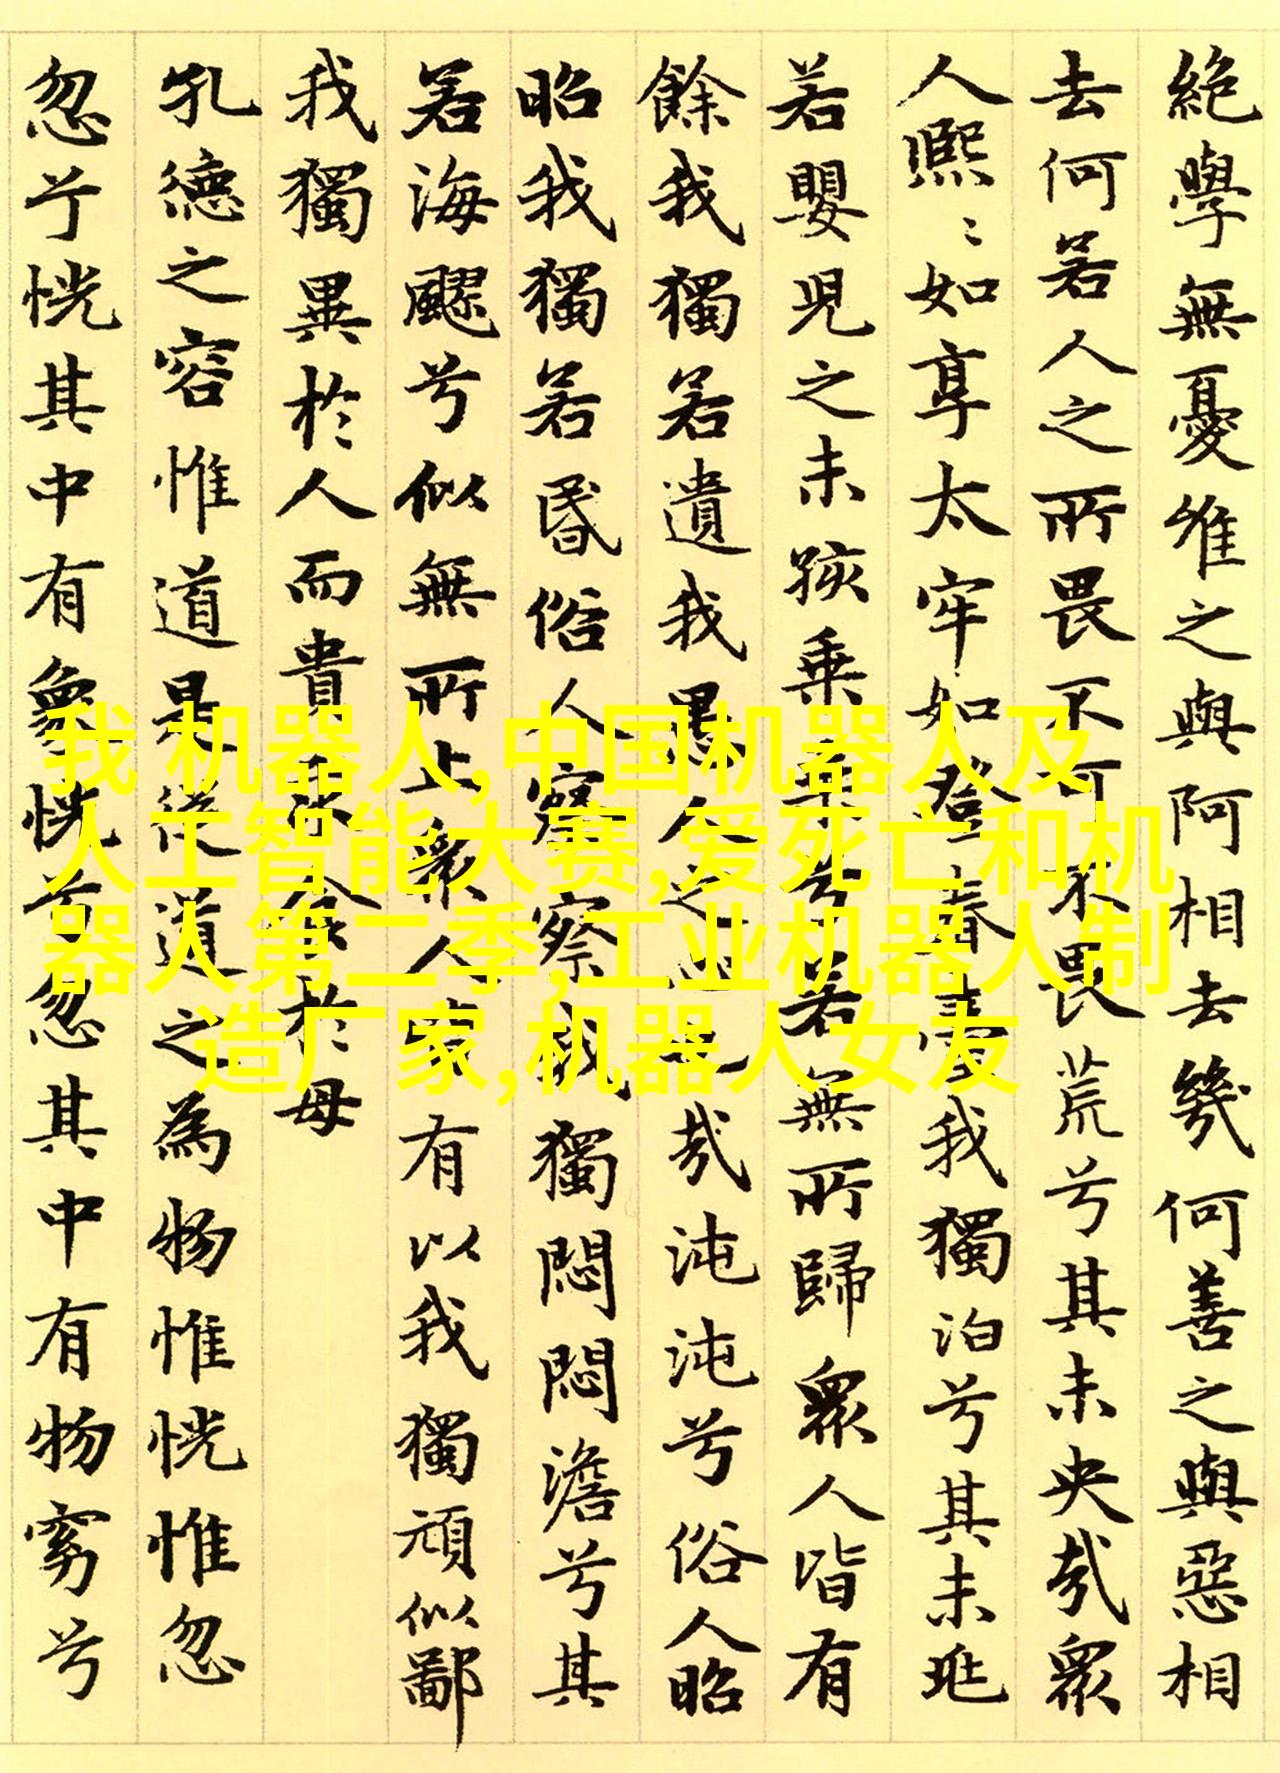 絕學無憂唯之與阿相去幾何善之與惡相
去何若人之所畏不可不畏荒兮其未央哉眾
人熙〻如享太牢如登春臺我獨泊兮其未兆
若嬰兒之未孩乗乗兮若無所歸眾人皆有
餘我獨若遺我愚人之心也哉沌沌兮俗人昭
昭我獨若昬俗人察察我獨悶悶澹兮其
若海飂兮似無所止衆人皆有以我獨頑似鄙
我獨異於人而貴求食於母
孔德之容惟道是從道之為物惟恍惟忽
忽兮恍其中有象恍兮忽其中有物窈兮
我 机器人,中国机器人及
人工智能大赛,爱死亡和机
器人第二季,工业机器人制
造厂家,机器人女友